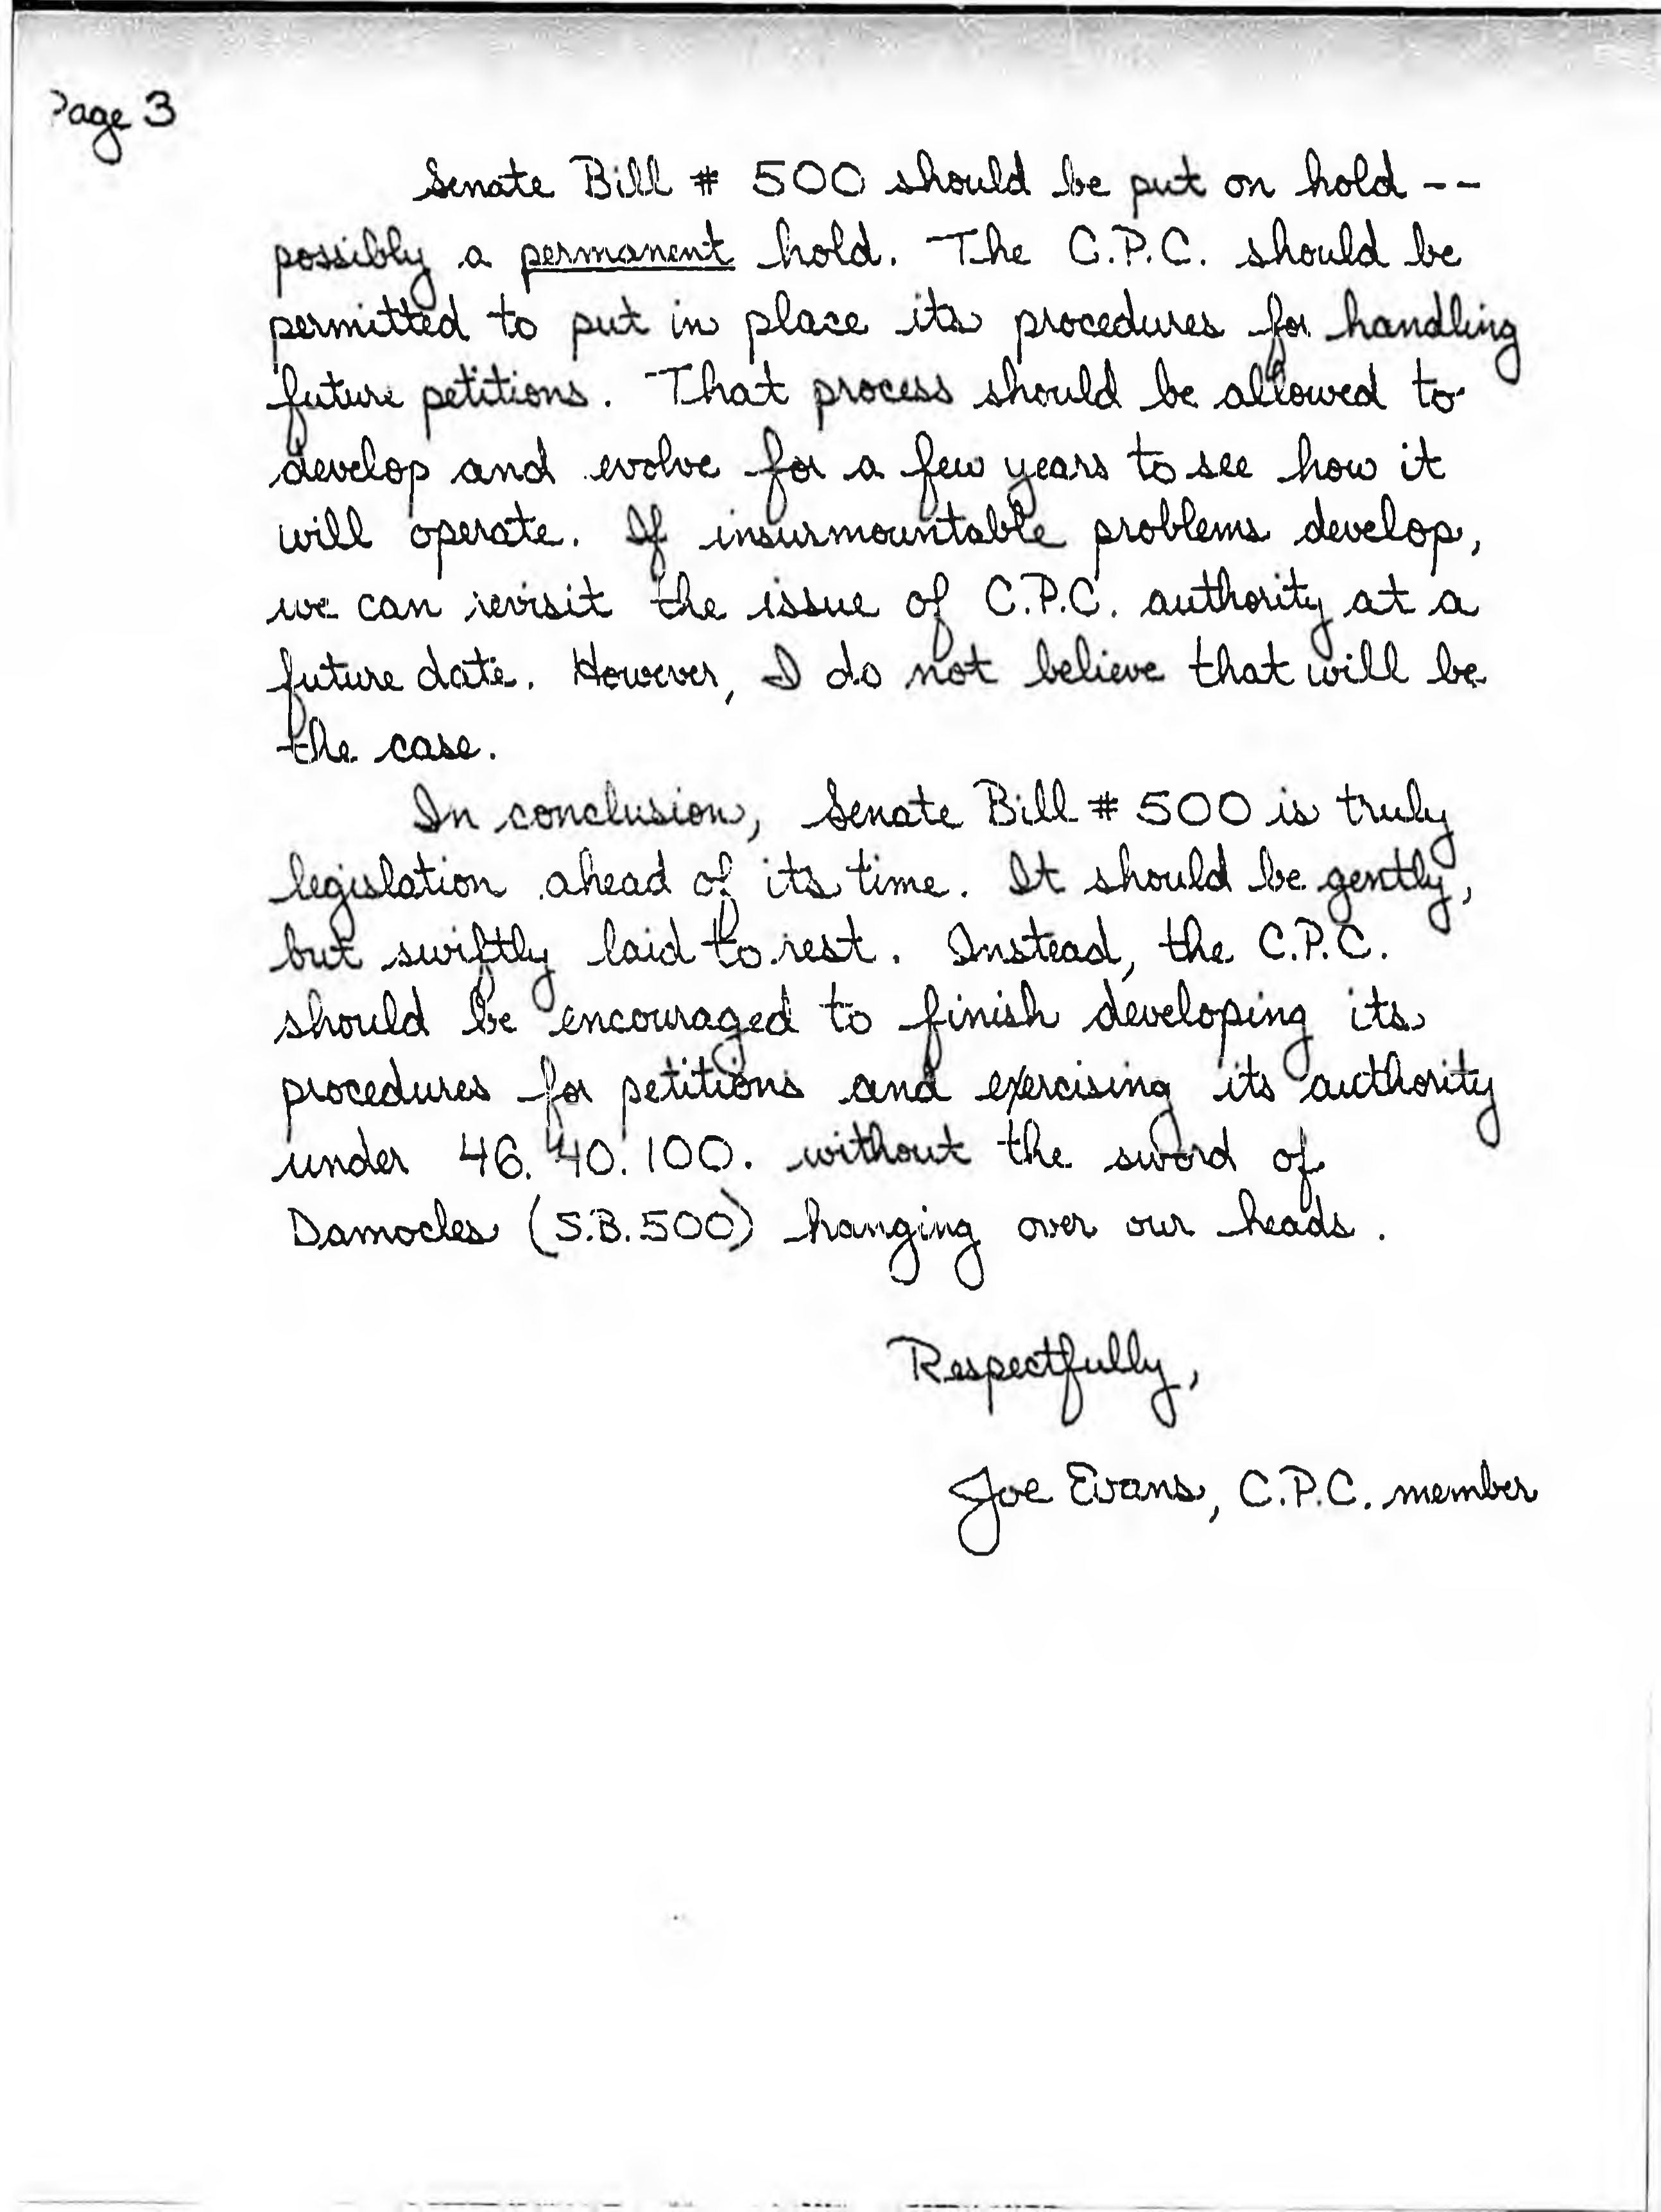 Page 3
Senate Bill # 500 should be put on hold --
possibly a permanent hold. The C.P.C. should be
permitted to put in place its procedures for handling
future petitions. That process should be allowed to
develop and evolve for a few years to see how it
will operate. If insurmountable problems develop,
we can revisit the issue of C.P.C. authority at a
future date. However, I do not believe that will be
the case.
In conclusion, Senate Bill # 500 is truly
legislation ahead of its time. It should be gently,
but swiftly laid to rest. Instead, the C.P.C.
should be encouraged to finish developing its
procedures for petitions and exercising its authority
under 46.40.100. without the sword of
Damocles (S.B. 500) hanging over our heads.
Respectfully,
Joe Evans, C.P.C. member